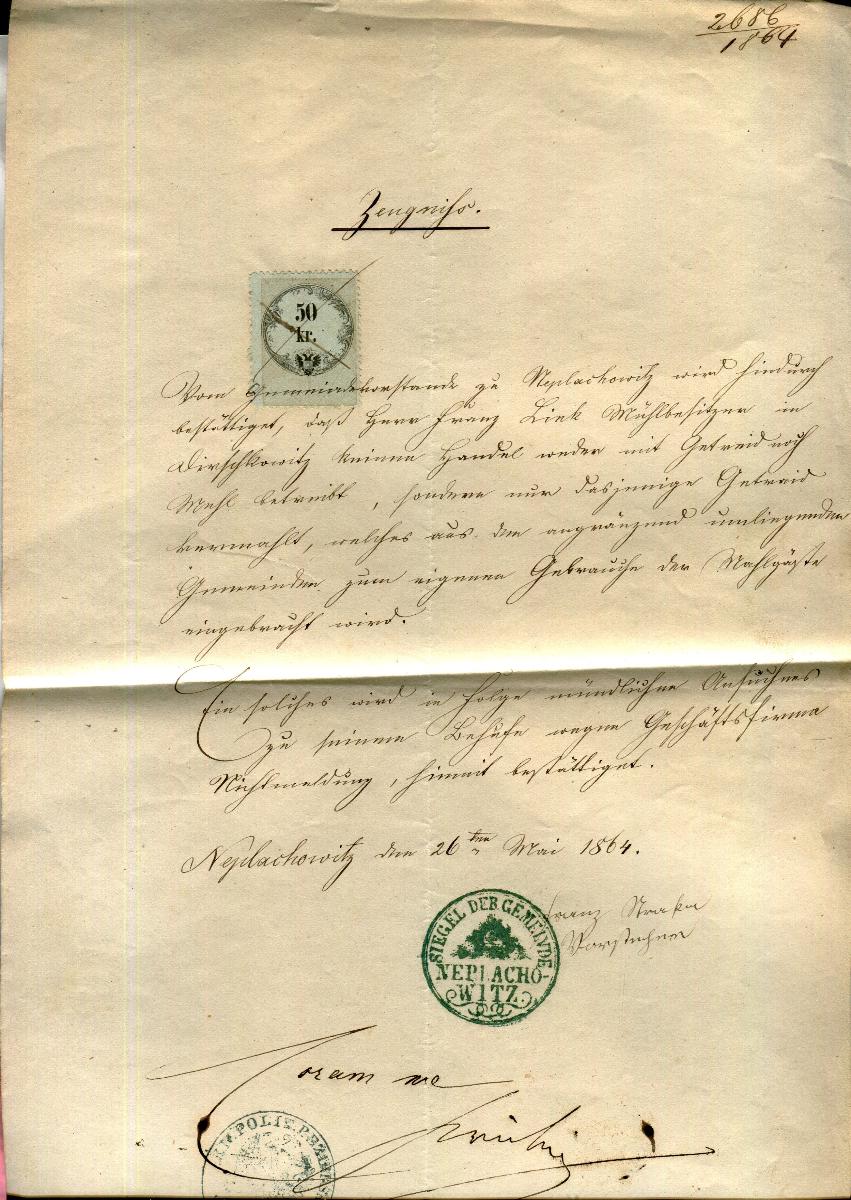 2686
1864
Zeugniss.
50
kr.
Vom Gemeindevorstande zu Neplachowitz wird hindurch
bestättiget, daß Herr Franz Link Mühlbesitzer in
Dirschkowitz keinen Handel weder mit Getreid noch
Mehl betreibt, sondern nur dasjenige Getraid
vermahlt, welches aus den angränzend umliegenden
Gemeinden zum eigenen Gebrauche der Mahlgäste
eingebracht wird.
Ein solches wird in Folge mündlichen Ansuchens
zu seinem Behufe wegen Geschäftsfirma
Nichtmeldung, hiemit bestättiget.
Neplachowitz den 26ten Mai 1864.
Franz
Vorsteher
SIEGEL DER GEMEINDE
NEPLACHO-
WITZ
Coram me
POLIT. BEZIRKS